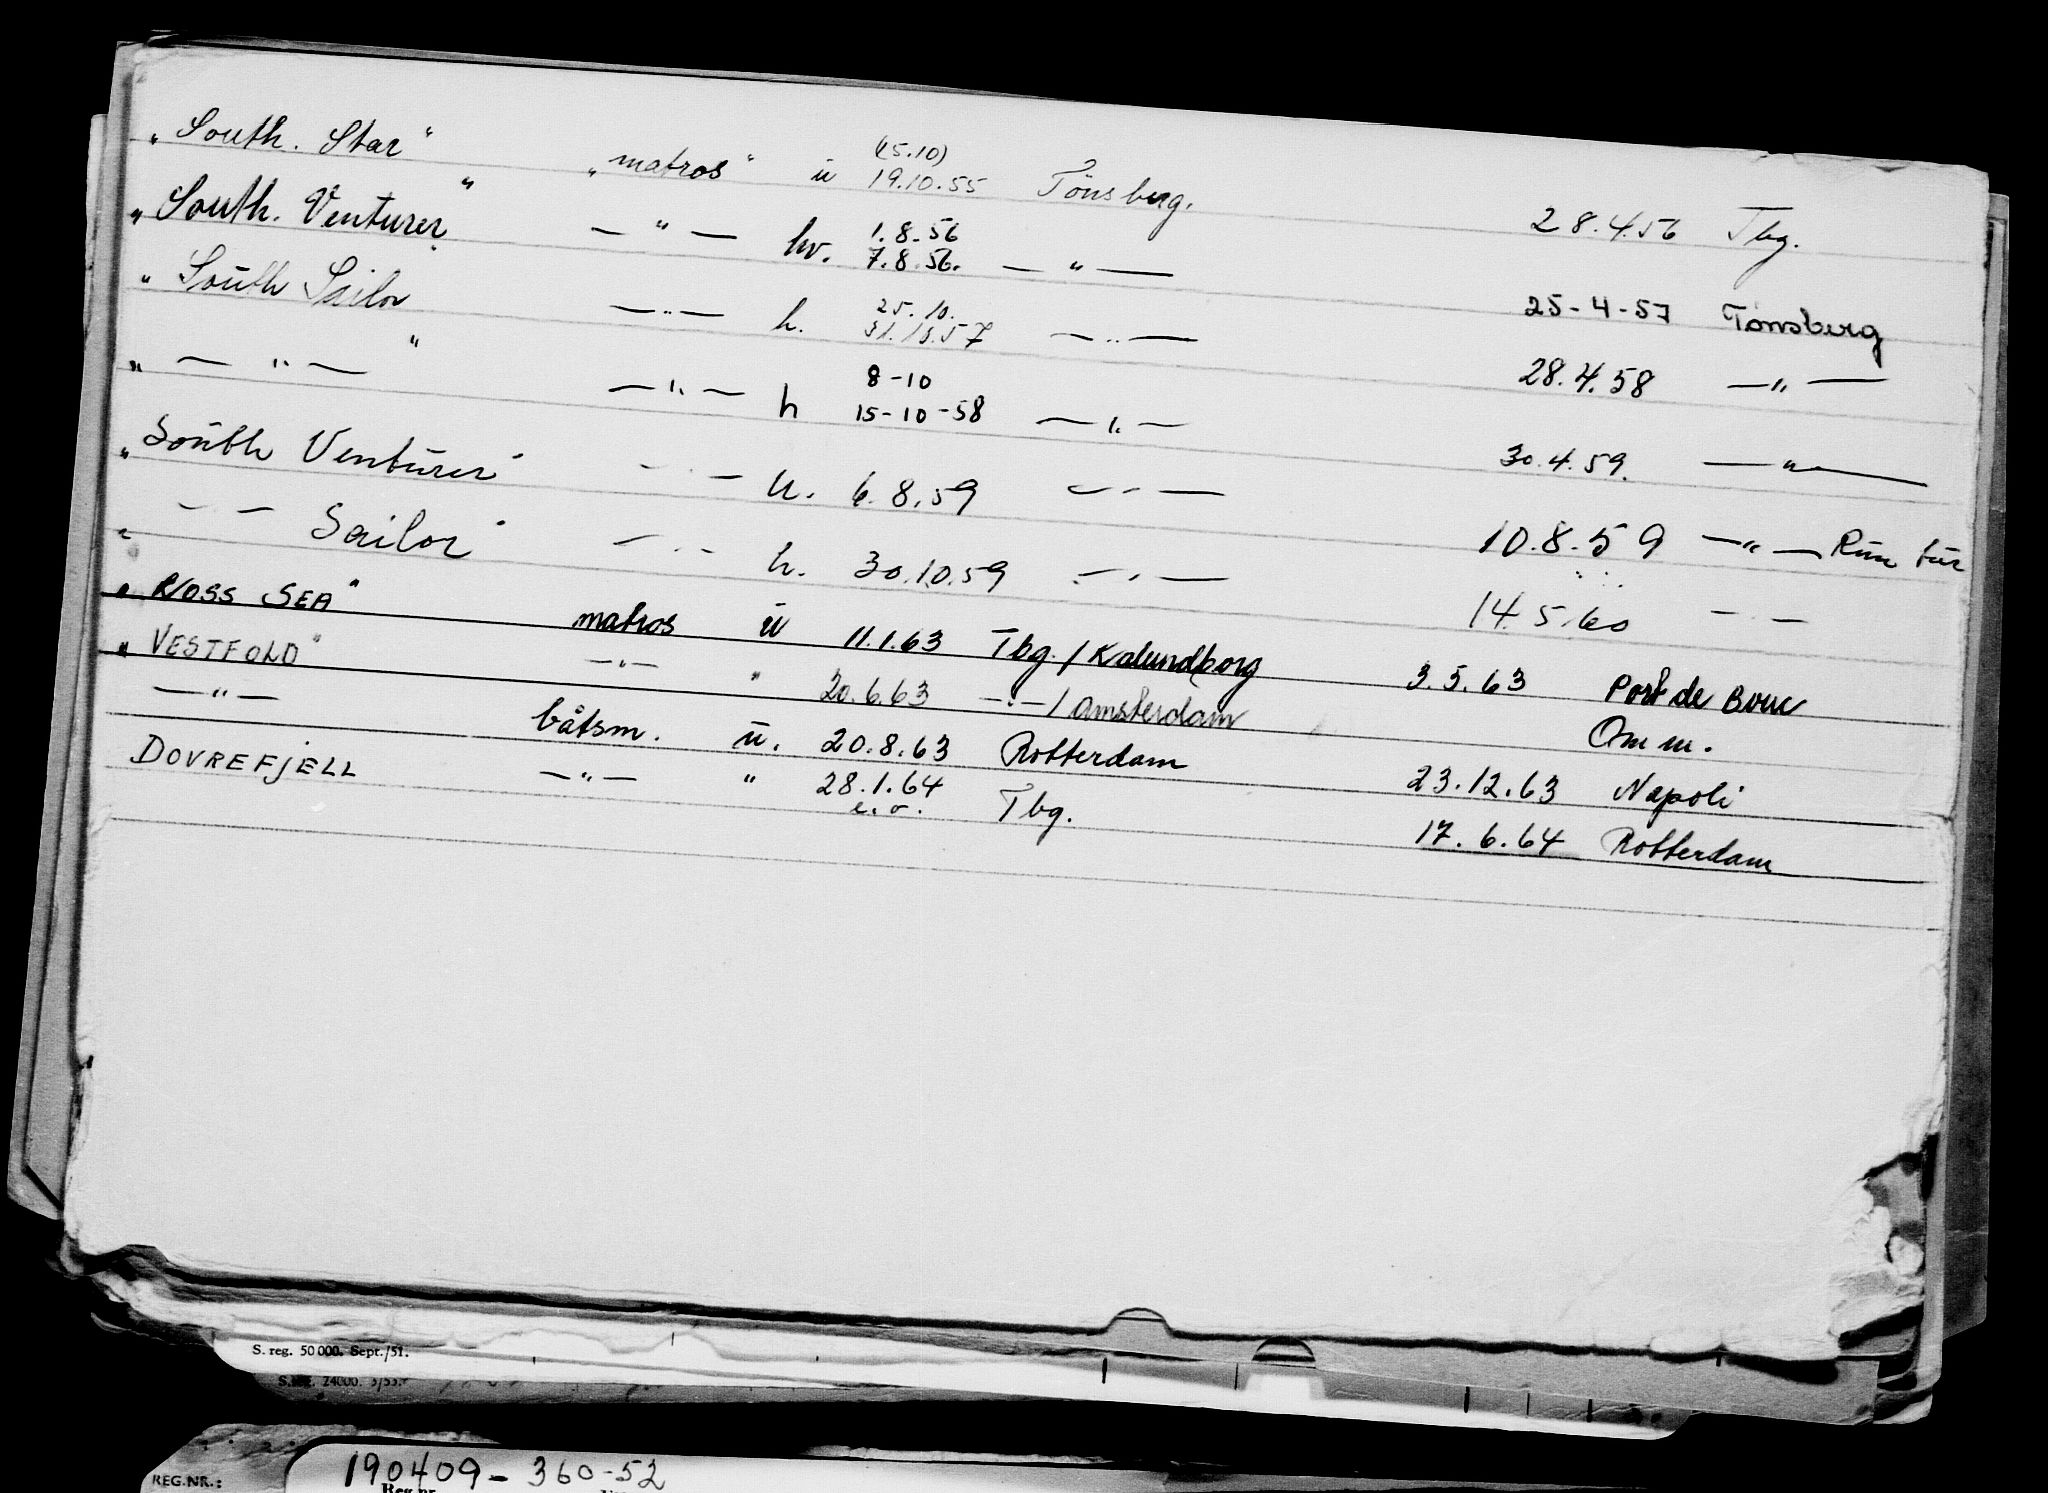 „South. Star" „matros" ū (15.10) 19.10.55 Tönsberg. 28.4.56 Tbg.
„South. Venturer" — " — hv. 1.8.56 7.8.56. — " — 25-4-57 Tönsberg
„South Sailor" — " — h. 25.10. 31.10.57 — " — 28.4.58 — " —
„ — " — " — " — h 8-10 15-10-58 — " — 30.4.59. — " —
„South Venturer" — " — h. 6.8.59 — " — 10.8.59 — " — Run tur
„ — " — Sailor" — " — h. 30.10.59 — " — 14.5.60 — " —
„ROSS SEA" matros ū 11.1.63 Tbg./Kalundborg 3.5.63 Port de Bouc
„VESTFOLD" — " — " 20.6.63 — " — / Amsterdam Om m.
— " — båtsm. ū. 20.8.63 Rotterdam 23.12.63 Napoli
DOVREFJELL — " — " 28.1.64 e.o. Tbg. 17.6.64 Rotterdam
S. reg. 50 000. Sept./51.
24000. 3/53.
REG.NR.: 190409-360-52
Reg.nr.